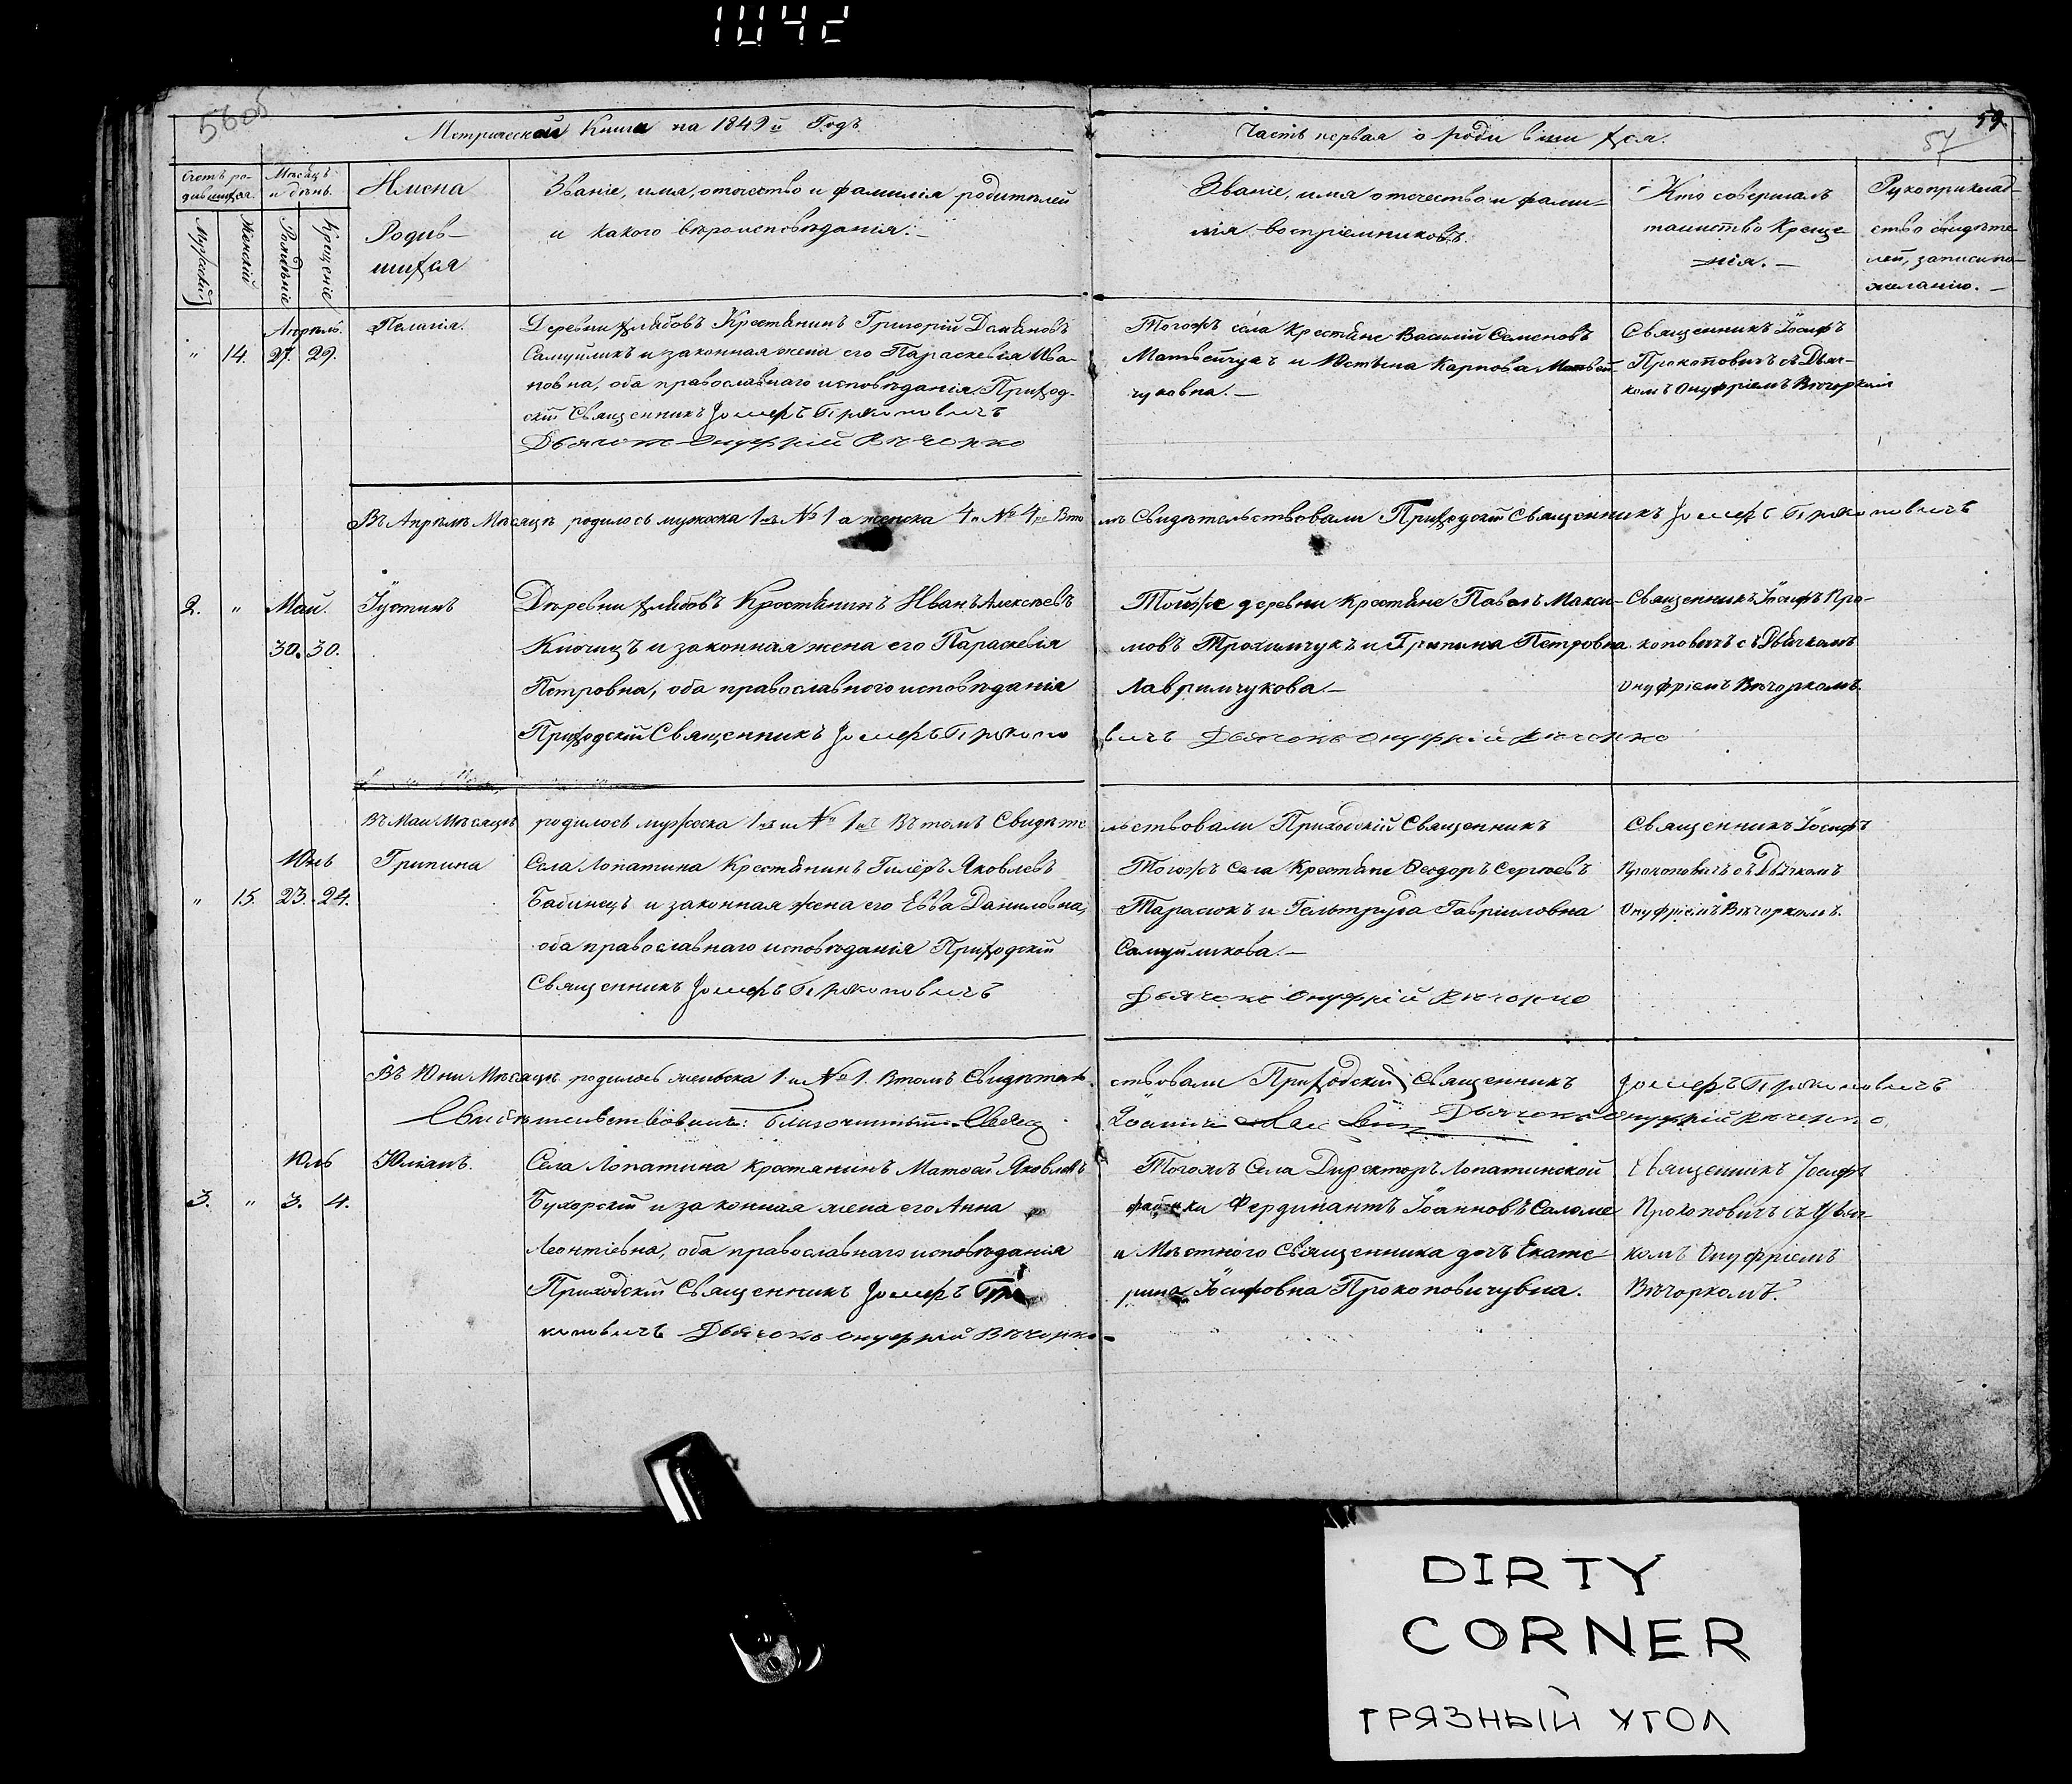 1042
5605
Метрической Книги на 1849й Годъ
Часть первая о родившихся.
57
Счетъ ро-
дившихся.
Мѣсяцъ
и день.
Имена
Родив-
шихся
Званіе, имя, отчество и фамилія родителей
и какого вѣроисповѣданія.
Званіе, имя отчество и фами-
лія воспріемниковъ.
Кто совершалъ
таинство Креще-
нія.
Рукоприклад-
ство свидѣте-
лей, записи по
желанію.
Мужескій
Женскій
Рожденіе
Крещеніе
Апрѣль.
" 14. 27. 29.
Пелагія.
Деревни Хлѣбовъ Крестянинъ Григорій Даміановъ
Самуйликъ и законная жена его Параскевія Ива-
новна, оба православнаго исповѣданія. Приход-
скій Священникъ Іосифъ Прокоповичъ
Дьячокъ Онуфрій Вѣчорко
Тогожъ села Крестяне Василій Семеновъ
Матвейчукъ и Юстина Карпова Матвей-
чуковна.
Священникъ Іосифъ
Прокоповичъ съ Дьяч-
комъ Онуфріемъ Вѣчоркомъ
Въ Апрѣлѣ Мѣсяцѣ родилось мужеска 1нъ № 1 а женска 4 и № 4ре Вто
мъ Свидѣтельствовали Приходскій Священникъ Іосифъ Прокоповичъ
2. " Май.
30. 30.
Іустинъ
Деревни Хлѣбовъ Крестянинъ Иванъ Алексѣевъ
Ключицъ и законная жена его Параскевія
Петровна, оба православного исповѣданія
Приходскій Священникъ Іосифъ Прокопо
Тойже деревни Крестяне Павелъ Макси-
мовъ Трохимчукъ и Грипина Петровна
Лавримчукова.
вичъ Дьячокъ Онуфрій Вѣчорко
Священникъ Іосифъ Про-
коповичъ съ Дьячкомъ
Онуфріемъ Вѣчоркомъ.
Въ Маи Мѣсяцѣ родилось мужеска 1нъ и № 1нъ Въ томъ Свидѣте
льствовали Приходскій Священникъ
Юнь
" 15. 23. 24.
Грипина
Села Лопатина Крестянинъ Гилёръ Яковлевъ
Бабинецъ и законная жена его Евва Даниловна,
оба православнаго исповѣданія Приходскій
Священникъ Іосифъ Прокоповичъ
Тогожъ Села Крестяне Ѳеодоръ Сергѣевъ
Тарасюкъ и Гельтруда Гавріиловна
Самуйликова.
Дьячокъ Онуфрій Вѣчорко
Священникъ Іосифъ
Прокоповичъ съ Дьячкомъ
Онуфріемъ Вѣчоркомъ.
Въ Юни Мѣсяцѣ родилось женска 1 и № 1. Втомъ Свидѣтель
ствовали Приходскій Священникъ Іосифъ Прокоповичъ
Дьячокъ Онуфрій Вѣчорко.
Юль
3. " 3. 4.
Юліанъ.
Села Лопатина крестянинъ Матвей Яковлевъ
Бухорскій и законная жена его Анна
Леонтіевна, оба православнаго исповѣданія
Приходскій Священникъ Іосифъ Про
коповичъ Дьячокъ Онуфрій Вѣчорко
Тогожъ Села Директоръ Лопатинской
фабрики Фердинантъ Іоанновъ Саломе
и Мѣстного Священника дочъ Екате
рина Іосифовна Прокоповичувна.
Священникъ Іосифъ
Прокоповичъ съ Дьяч-
комъ Онуфріемъ
Вѣчоркомъ.
DIRTY
CORNER
ГРЯЗНЫЙ УГОЛ